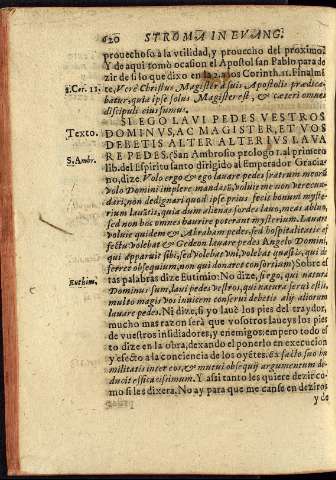 620 STROMA IN EVANG.
prouechoso a la vtilidad, y prouecho del proximo.
Y de aqui tomò ocasion el Apostol san Pablo para de
zir de si lo que dixo en la 2. a los Corinth. 11. Finalmẽ
2. Cor. 11. te, Verè Christus Magister à suis Apostolis prædica-
batur, quia ipse solus Magister est, & cæteri omnes
discipuli eius sumus.
SI EGO LAVI PEDES VESTROS
Texto. DOMINVS, AC MAGISTER, ET VOS
DEBETIS ALTER ALTERIVS LAVA
S. Ambr. RE PEDES. (San Ambrosio prologo 1. al primero
lib. del Espiritu santo dirigido al Emperador Gracia-
no, dize. Volo ergo & ego lauare pedes fratrum meorũ
volo Domini implere mandatũ, voluit me non verecun
dari, non dedignari quod ipse prius fecit bonum myste-
rium
sed nos omnes haurire poterant mysterium. Lauare
voluit quidem & Abraham pedes, sed hospitalitatis ef
fectu volebat & Gedeon lauare pedes Angelo Domini,
qui apparuit sibi, sed volebat vni, volebat quasi is, qui de
ferret obsequium, non qui donaret consortium) Sobre es
Euthim. tas palabras dize Eutimio: No dize, si ego, qui natura
Dominus sum, laui pedes vestros, qui natura serui estis,
multo magis vos inuicem conserui debetis alij aliorum
lauare pedes. Ni dize, si yo lauè los pies del traydor,
mucho mas razon serà que vosotros laueys los pies
de vuestros insidiadores, y enemigos: empero todo es
to dize en la obra, dexando el ponerlo en execucion
y efecto a la conciencia de los oyẽtes. Ex facto suo hu
militatis inter eos, & mutui obsequij argumentum de-
ducit efficacissimum. Y assi tanto les quiere dezir co-
mo si les dixera. No ay para que me canse en deziros
y de